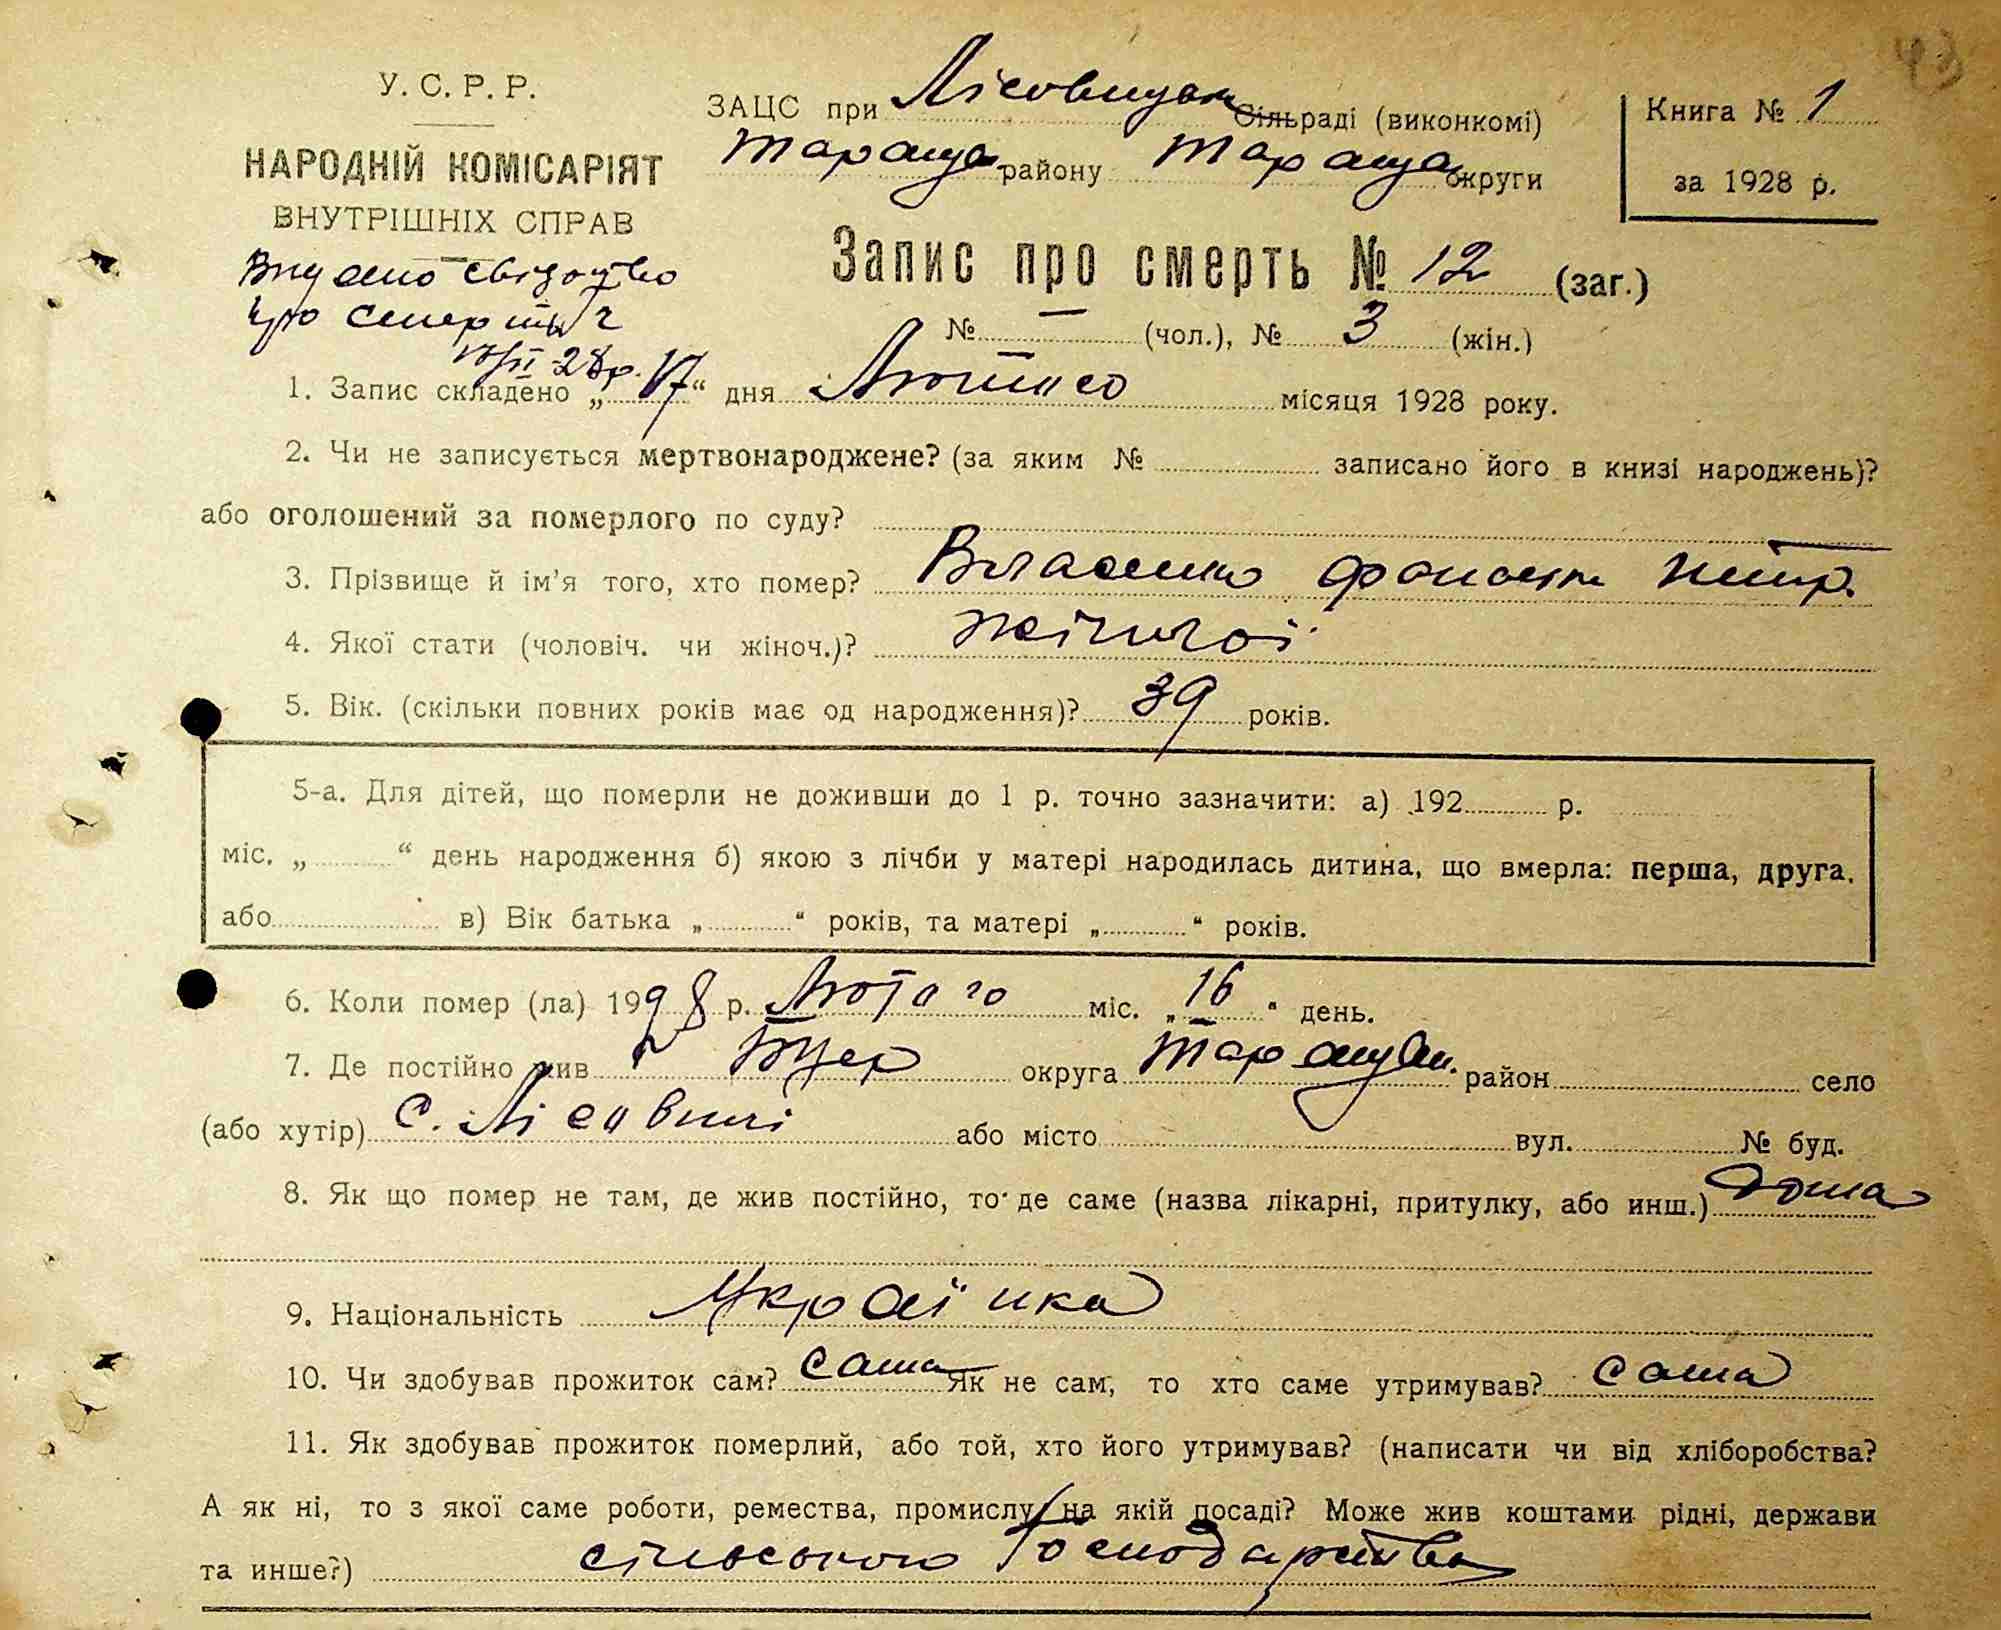 У. С. Р. Р.
НАРОДНІЙ КОМІСАРІЯТ
ВНУТРІШНІХ СПРАВ
Видано свідоцтво
про смерть
ЗАЦС при Лісовицьк Сільраді (виконкомі)
Таращ району Таращ округи
Книга № 1
за 1928 р.
Запис про смерть № 12 (заг.)
№ — (чол.), № 3 (жін.)
1. Запис складено „17“ дня Лютого місяця 1928 року.
2. Чи не записується мертвонароджене? (за яким № записано його в книзі народжень)?
або оголошений за померлого по суду?
3. Прізвище й ім’я того, хто помер? Власенко
4. Якої стати (чоловіч. чи жіноч.)? жіночої
5. Вік. (скільки повних років має од народження)? 39 років.
5-а. Для дітей, що померли не доживши до 1 р. точно зазначити: а) 192 р.
міс. „ “ день народження б) якою з лічби у матері народилась дитина, що вмерла: перша, друга,
або в) Вік батька „ “ років, та матері „ “ років.
6. Коли помер (ла) 1928 р. Лютого міс. „16“ день.
7. Де постійно жив округа Таращан. район село
(або хутір) с. Лісовичі або місто вул. № буд.
8. Як що помер не там, де жив постійно, то де саме (назва лікарні, притулку, або инш.) дома
9. Національність Українка
10. Чи здобував прожиток сам? сама Як не сам, то хто саме утримував? сама
11. Як здобував прожиток померлий, або той, хто його утримував? (написати чи від хліборобства?
А як ні, то з якої саме роботи, ремества, промислу, на якій посаді? Може жив коштами рідні, держави
та инше?) сільського Господарства